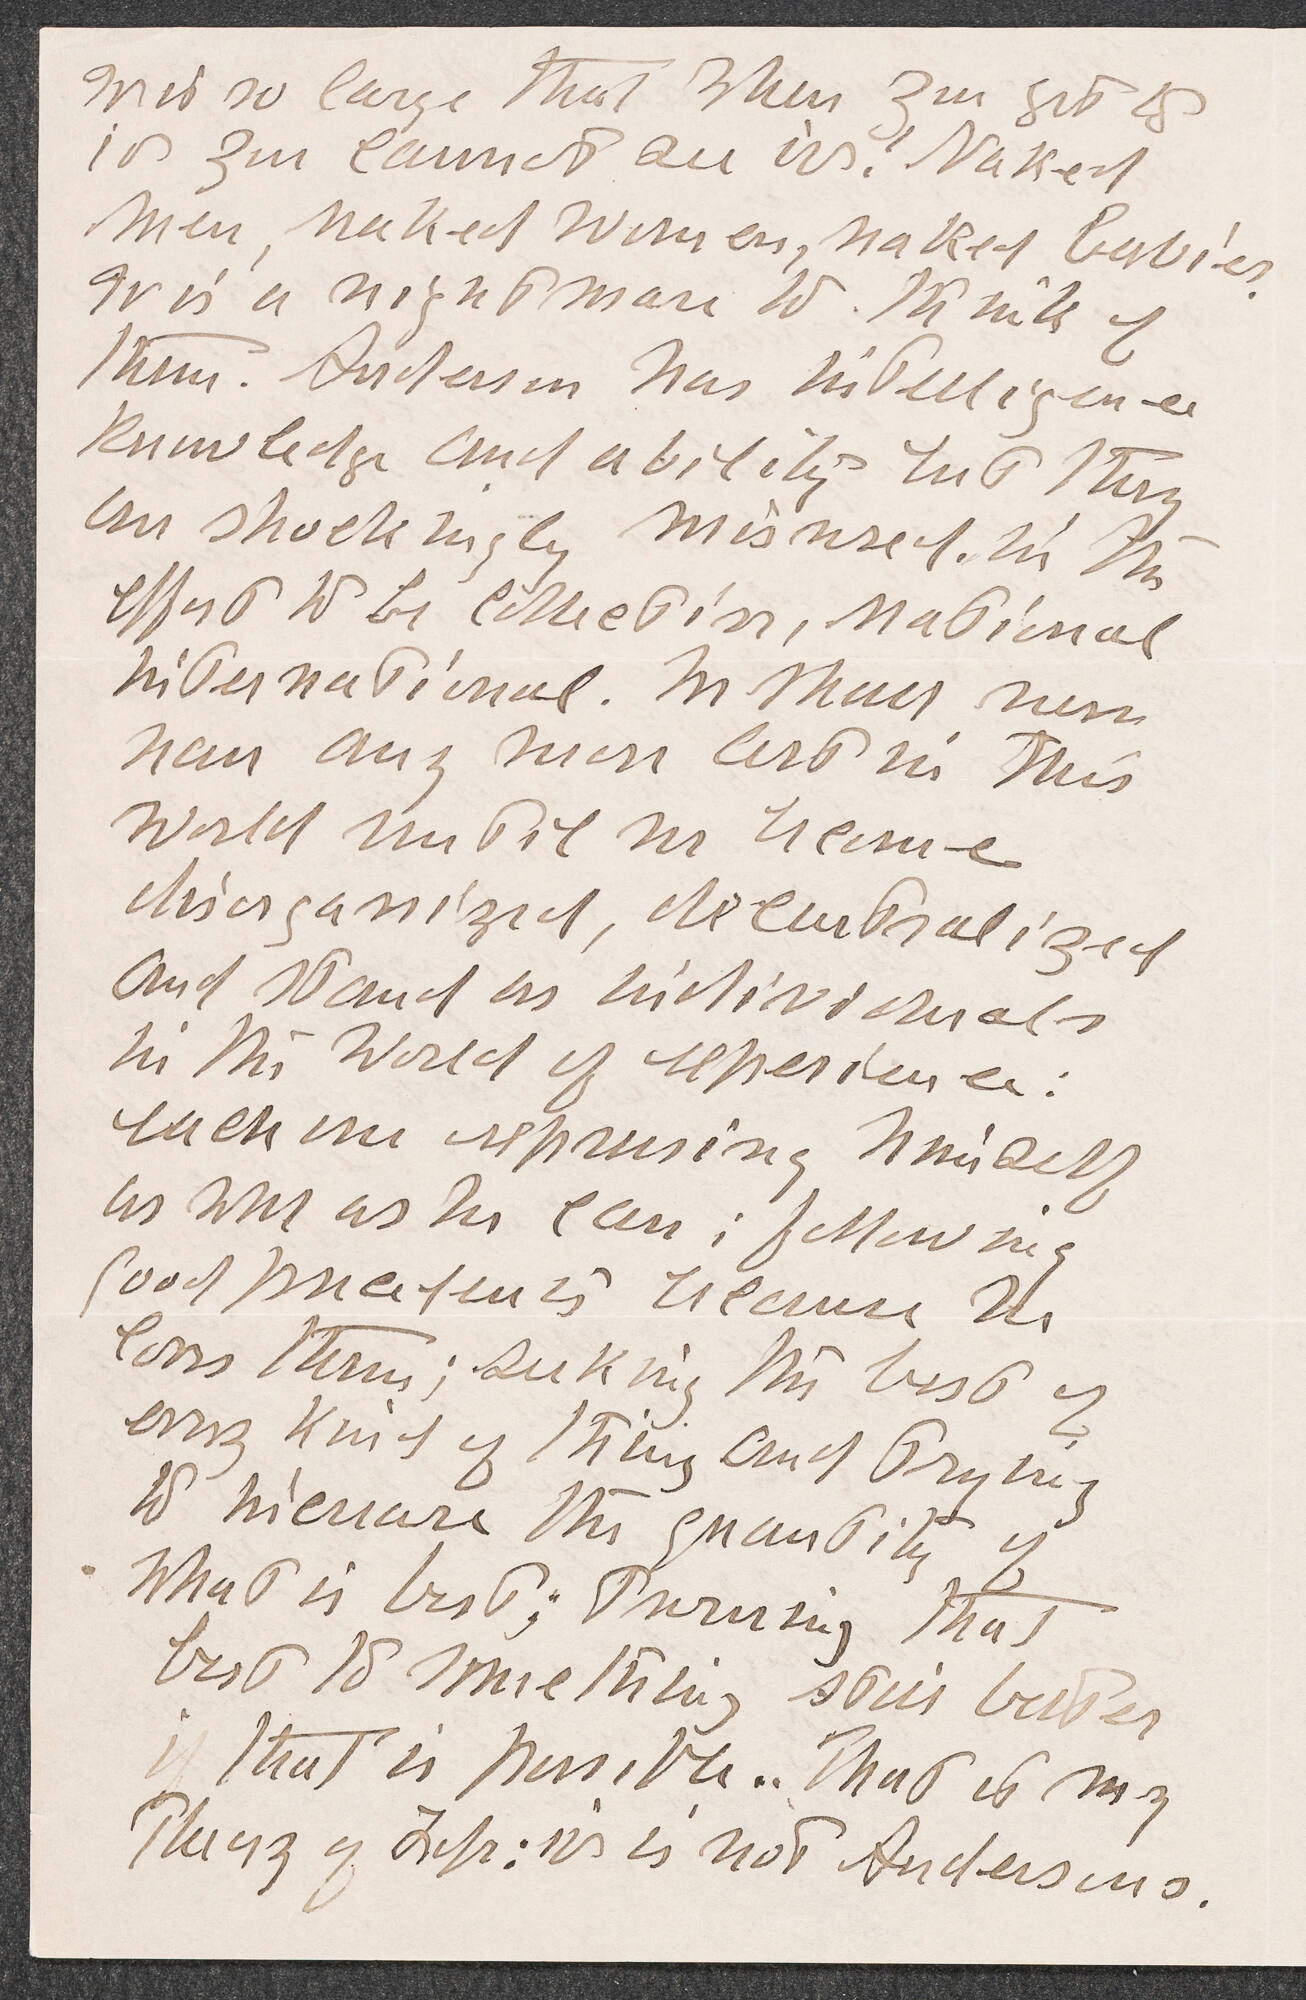 It is so large that when you get to
it you cannot see it! Naked
men, naked women, naked babies.
It is a nightmare to think of
them. Anderson has intelligence
knowledge and ability but they
are shockingly misused in the
effort to be collective, national
international. We shall never
have any more art in this
world until we become
disorganized, decentralized
and stand as individuals
in the world of experience:
each one expressing himself
as well as he can; following
good precedents because he
loves them; seeking the best of
every kind of thing and trying
to increase the quantity of
what is best; turning that
best to something still better
if that is possible.. That is my
Theory of Life: it is not Andersons.